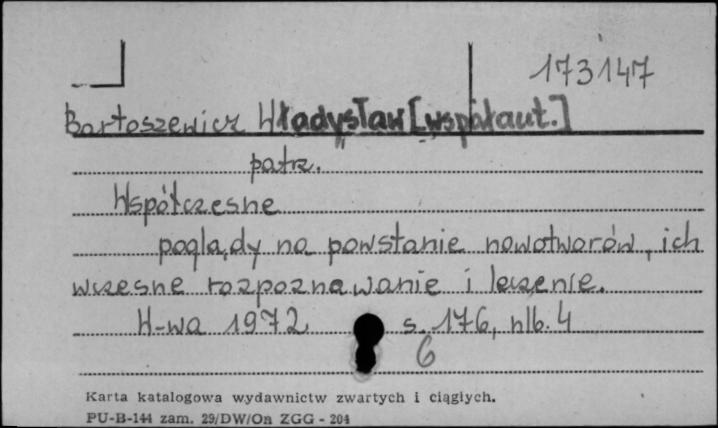 173147
Bartoszewicz Władysław [współaut.]
patrz.
Współczesne
poglądy na powstanie nowotworów, ich
wczesne rozpoznawanie i leczenie.
W-wa 1972 s. 176, nlb. 4
6
Karta katalogowa wydawnictw zwartych i ciągłych.
PU-B-144 zam. 29/DW/On ZGG - 204